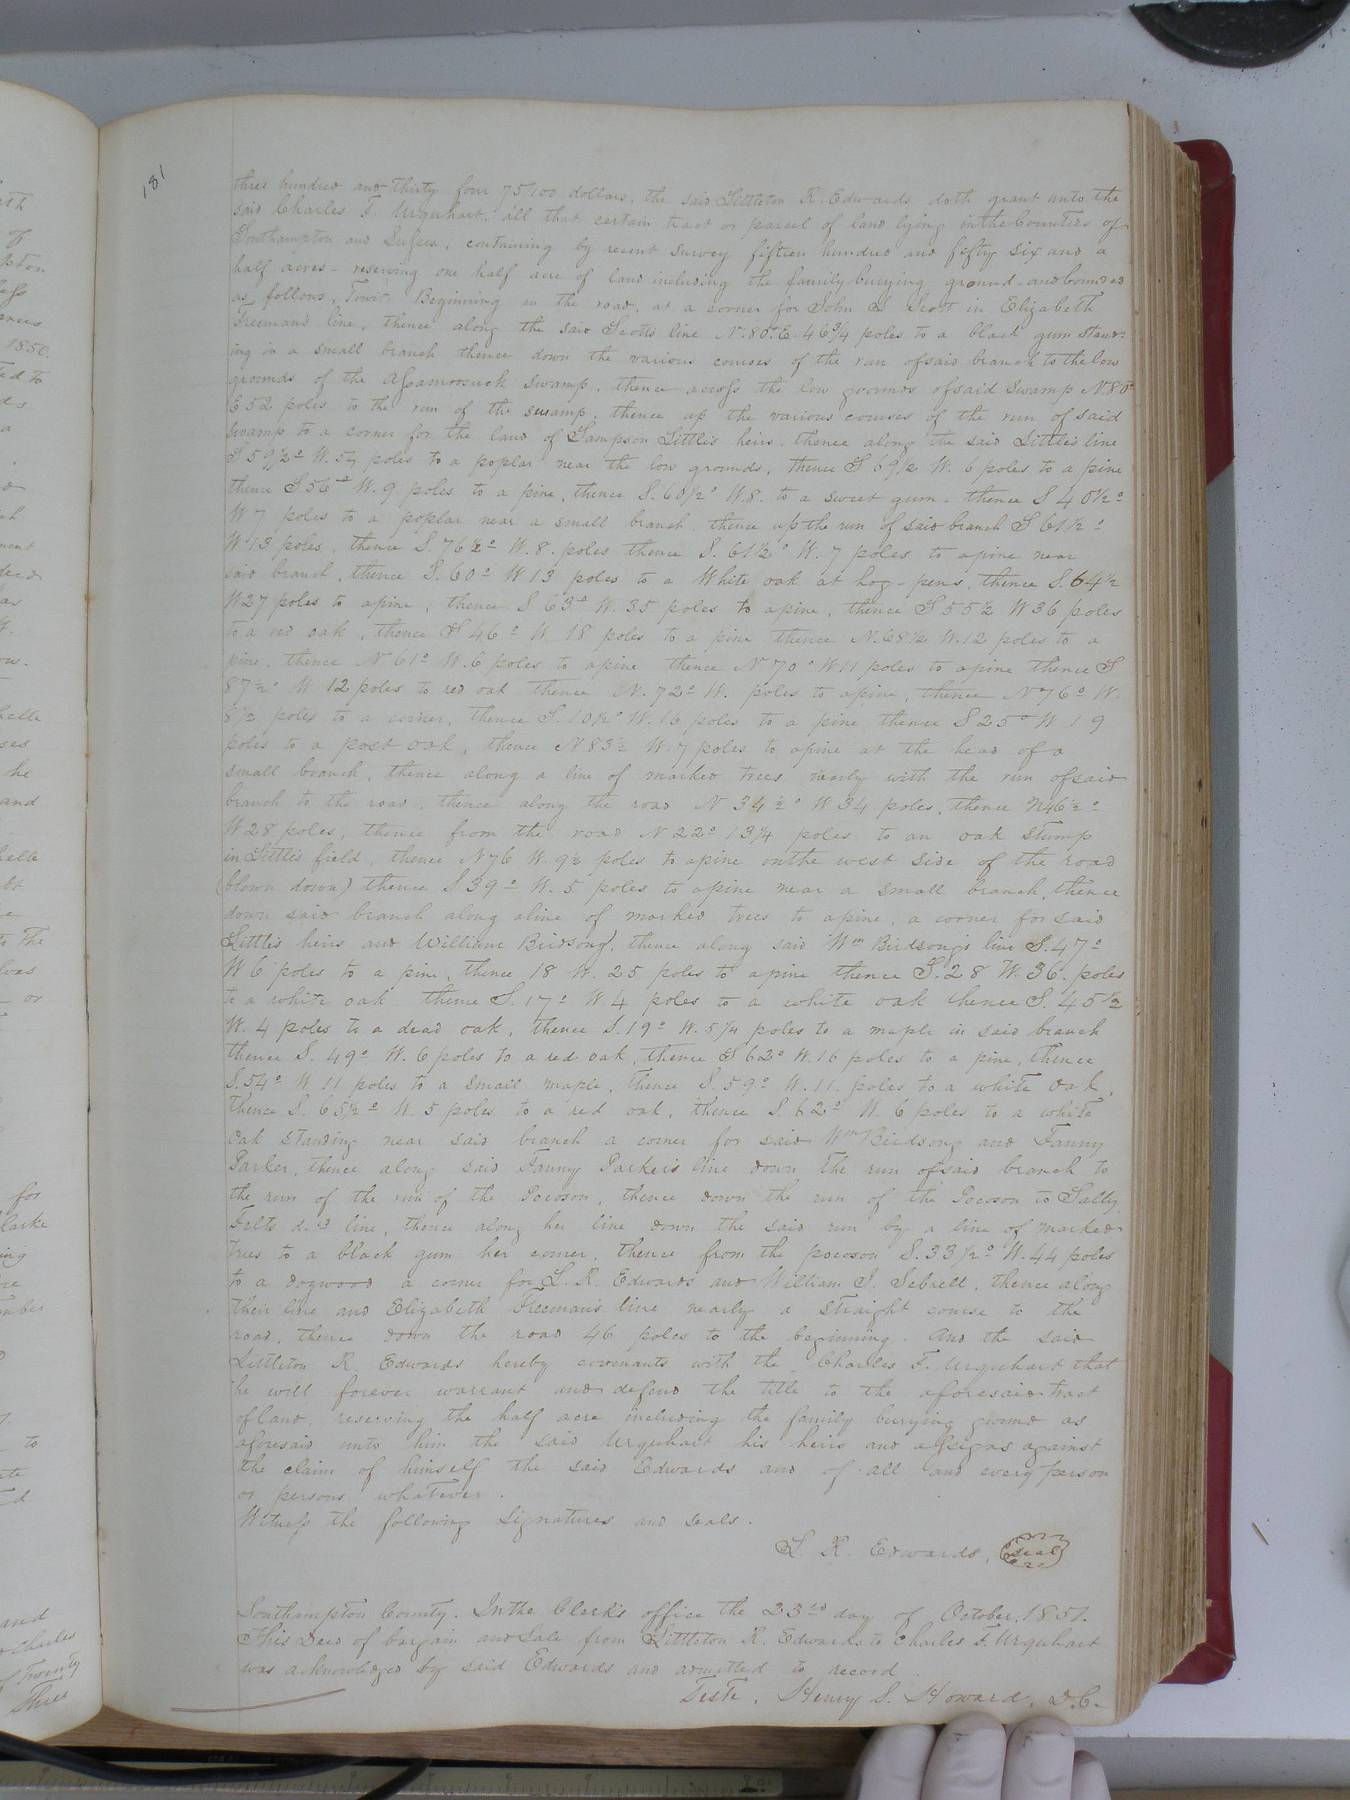 181
three hundred and thirty four 75/100 dollars, the said Littleton R. Edwards doth grant unto the
said Charles F. Urquhart, all that certain tract or parcel of land lying in the Counties of
Southampton and Sussex, containing by recent survey fifteen hundred and fifty six and a
half acres - reserving one half acre of land including the family burying ground - and bounded
as follows, Towit, Beginning in the road, at a corner for John S. Scott in Elizabeth
Freeman's line, thence along the said Scotts line N. 80° E. 46 3/4 poles to a black gum stand-
ing in a small branch thence down the various courses of the run of said branch to the low
grounds of the Assamoosuck swamp, thence across the low grounds of said swamp N 80°
E 52 poles to the run of the swamp, thence up the various courses of the run of said
swamp to a corner for the land of Sampson Little's heirs, thence along the said Little's line
S 59 1/2° W. 54 poles to a poplar near the low grounds, thence S 69 1/2 W. 6 poles to a pine
thence S 56° W. 9 poles to a pine, thence S. 60 1/2° W. 8. to a sweet gum. thence S 40 1/2°
W 7 poles to a poplar near a small branch, thence up the run of said branch S 61 1/2°
W 13 poles, thence S. 76 1/2° W. 8. poles thence S. 61 1/2° W. 7 poles to a pine near
said branch, thence S. 60° W 13 poles to a White oak at hog-pens, thence S. 64 1/2
W 27 poles to a pine, thence S 63° W. 35 poles to a pine, thence S 55 1/2 W 36 poles
to a red oak, thence S 46° W. 18 poles to a pine thence N. 68 1/2 W. 12 poles to a
pine, thence N 61° W. 6 poles to a pine thence N 70° W 11 poles to a pine thence S
87 1/2° W 12 poles to red oak thence N. 72° W. poles to a pine, thence N 76° W.
8 1/2 poles to a corner, thence S. 10 1/2° W. 16 poles to a pine thence S 25° W 19
poles to a post oak, thence N 83 1/2 W. 7 poles to a pine at the head of a
small branch, thence along a line of marked trees nearly with the run of said
branch to the road, thence along the road N 34 1/2° W 34 poles, thence N46 1/2°
W 28 poles, thence from the road N 22° 13 1/4 poles to an oak stump
in Little's field, thence N 76 W. 9 1/2 poles to a pine on the west side of the road
(blown down) thence S 39° W. 5 poles to a pine near a small branch, thence
down said branch along a line of marked trees to a pine, a corner for said
Little's heirs and William Birdsong, thence along said Wm Birdsong's line S. 47°
W 6 poles to a pine, thence 18 W. 25 poles to a pine thence S. 28 W. 36. poles
to a white oak thence S. 17° W. 4 poles to a white oak thence S. 45 1/2
W. 4 poles to a dead oak, thence S. 19° W. 5 1/4 poles to a maple in said branch
thence S. 49° W. 6 poles to a red oak, thence S 62° W. 16 poles to a pine, thence
S. 54° W 11 poles to a small maple, thence S. 59° W. 11. poles to a white oak,
thence S. 65 1/2° W. 5 poles to a red oak, thence S. 62° W. 6 poles to a white
oak standing near said branch a corner for said Wm Birdsong and Fanny
Parker, thence along said Fanny Parker's line down the run of said branch to
the run of the run of the Pocoson, thence down the run of the Pocoson to Sally
Felts line, thence along her line down the said run by a line of marked
trees to a black gum her corner, thence from the pocoson S. 33 1/2° W. 44 poles
to a dogwood a corner for L. R. Edwards and William J. Sebrell, thence along
their line and Elizabeth Freeman's line nearly a straight course to the
road, thence down the road 46 poles to the beginning. And the said
Littleton R. Edwards hereby covenants with the Charles F. Urquhart that
he will forever warrant and defend the title to the aforesaid tract
of land, reserving the half acre including the family burying ground as
aforesaid unto him the said Urquhart his heirs and assigns against
the claim of himself the said Edwards and of all and every person
or persons whatever.
Witness the following signatures and seals.
L R. Edwards, seal
Southampton County. In the Clerk's office the 23rd day of October, 1851.
This Deed of bargain and Sale from Littleton R. Edwards to Charles F. Urquhart
was acknowledged by said Edwards and admitted to record.
Teste, Henry S. Howard, D.C.